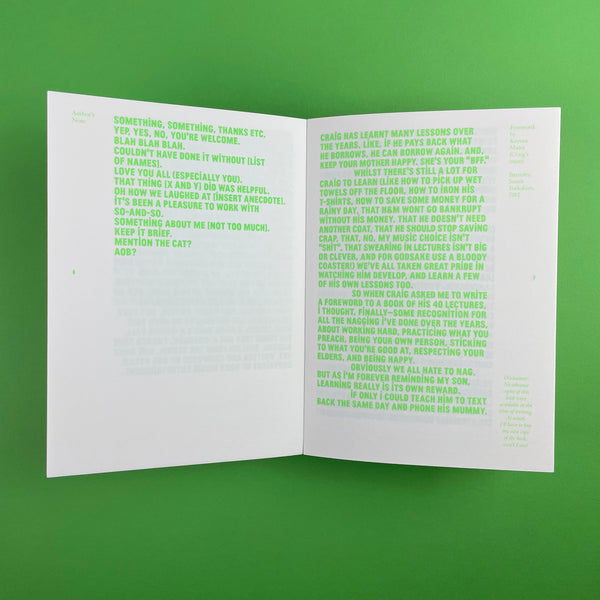 Author's
Note
SOMETHING, SOMETHING, THANKS ETC.
YEP, YES, NO, YOU'RE WELCOME.
BLAH BLAH BLAH.
COULDN'T HAVE DONE IT WITHOUT [LIST
OF NAMES].
LOVE YOU ALL (ESPECIALLY YOU).
THAT THING [X AND Y] DID WAS HELPFUL.
OH HOW WE LAUGHED AT [INSERT ANECDOTE].
IT'S BEEN A PLEASURE TO WORK WITH
SO-AND-SO.
SOMETHING ABOUT ME (NOT TOO MUCH).
KEEP IT BRIEF.
MENTION THE CAT?
AOB?
CRAIG HAS LEARNT MANY LESSONS OVER
THE YEARS. LIKE, IF HE PAYS BACK WHAT
HE BORROWS, HE CAN BORROW AGAIN. AND,
KEEP YOUR MOTHER HAPPY. SHE'S YOUR "BFF."
WHILST THERE'S STILL A LOT FOR
CRAIG TO LEARN (LIKE HOW TO PICK UP WET
TOWELS OFF THE FLOOR, HOW TO IRON HIS
T-SHIRTS, HOW TO SAVE SOME MONEY FOR A
RAINY DAY, THAT H&M WONT GO BANKRUPT
WITHOUT HIS MONEY, THAT HE DOESN'T NEED
ANOTHER COAT, THAT HE SHOULD STOP SAVING
CRAP, THAT, NO, MY MUSIC CHOICE ISN'T
"SHIT", THAT SWEARING IN LECTURES ISN'T BIG
OR CLEVER, AND FOR GODSAKE USE A BLOODY
COASTER!) WE'VE ALL TAKEN GREAT PRIDE IN
WATCHING HIM DEVELOP, AND LEARN A FEW
OF HIS OWN LESSONS TOO.
SO WHEN CRAIG ASKED ME TO WRITE
A FOREWORD TO A BOOK OF HIS 40 LECTURES,
I THOUGHT, FINALLY—SOME RECOGNITION FOR
ALL THE NAGGING I'VE DONE OVER THE YEARS,
ABOUT WORKING HARD, PRACTICING WHAT YOU
PREACH, BEING YOUR OWN PERSON, STICKING
TO WHAT YOU'RE GOOD AT, RESPECTING YOUR
ELDERS, AND BEING HAPPY.
OBVIOUSLY WE ALL HATE TO NAG.
BUT AS I'M FOREVER REMINDING MY SON,
LEARNING REALLY IS ITS OWN REWARD.
IF ONLY I COULD TEACH HIM TO TEXT
BACK THE SAME DAY AND PHONE HIS MUMMY.
Foreword
by
Mann
(Craig's
mum)
Barnsley,
South
Yorkshire,